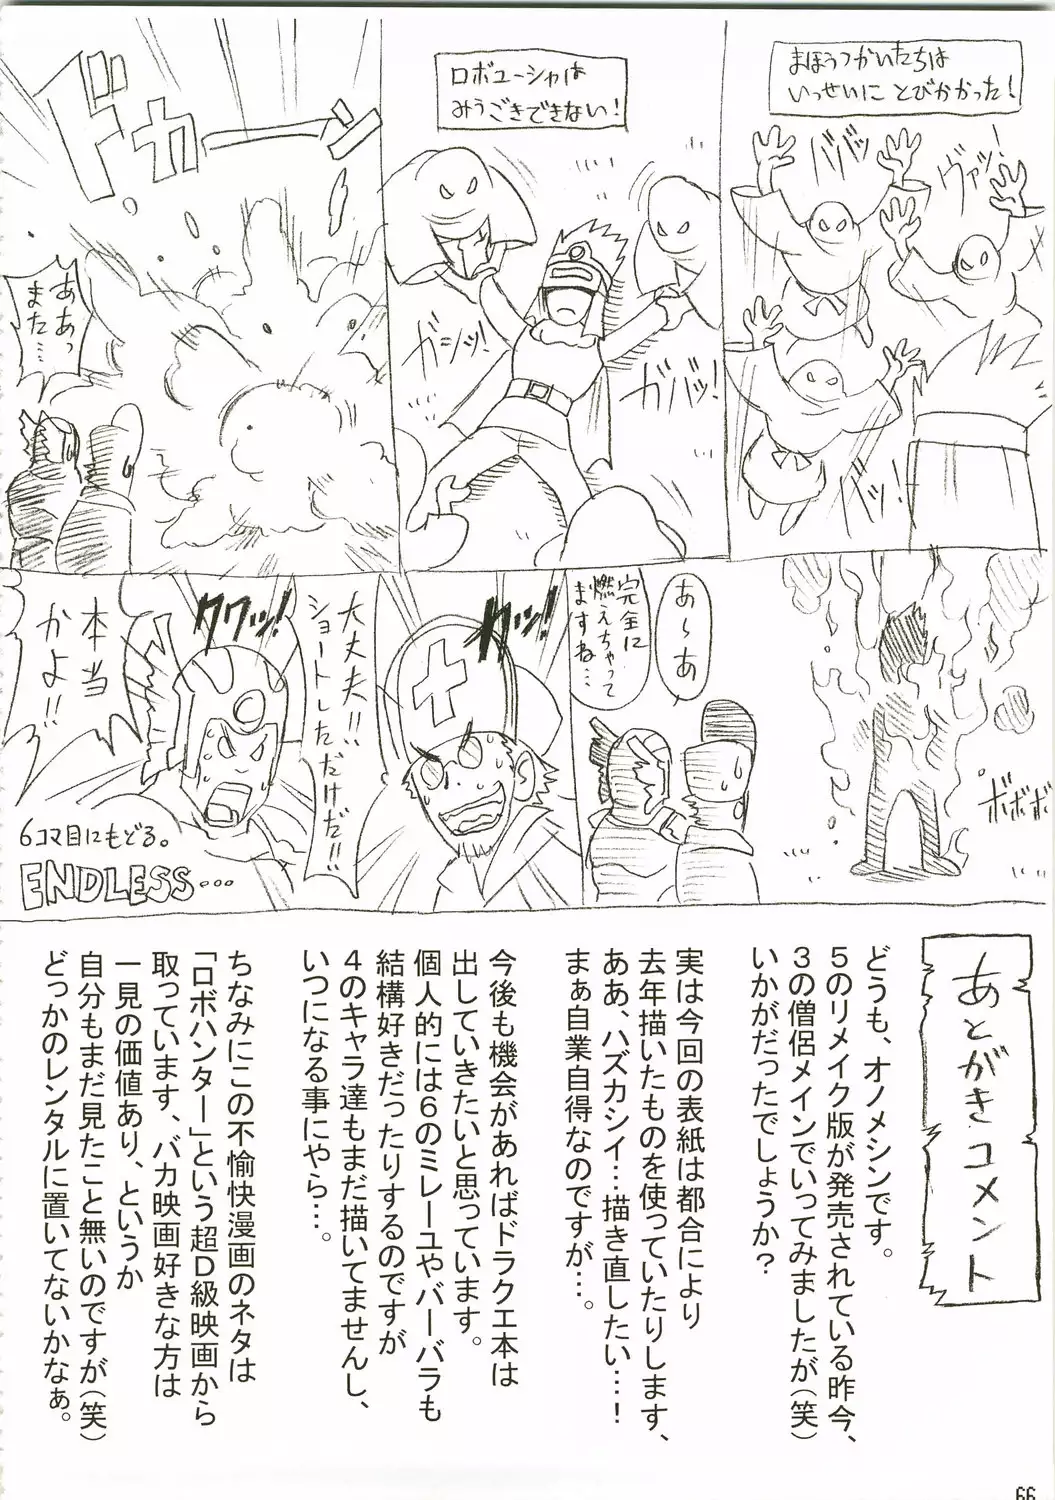 まほうつかいたちは
いっせいに とびかかった！
ババッ
ヴァッ！
バッ！
ロボユーシャは
みうごきできない！
ガシッ！
ガバッ！
ドカーン
ああっ
また…
ボボボ
あ〜あ
完全に
燃えちゃって
ますね…
クワッ！
大丈夫！！
ショートしただけだ！！
クワッ！
本当
かよ！！
6コマ目にもどる。
ENDLESS…
あとがきコメント
どうも、オノメシンです。
５のリメイク版が発売されている昨今、
３の僧侶メインでいってみましたが（笑）
いかがだったでしょうか？
実は今回の表紙は都合により
去年描いたものを使っていたりします、
ああ、ハズカシイ…描き直したい…！
まぁ自業自得なのですが…。
今後も機会があればドラクエ本は
出していきたいと思っています。
個人的には６のミレーユやバーバラも
結構好きだったりするのですが
４のキャラ達もまだ描いてませんし、
いつになる事にやら…。
ちなみにこの不愉快漫画のネタは
「ロボハンター」という超Ｄ級映画から
取っています、バカ映画好きな方は
一見の価値あり、というか
自分もまだ見たこと無いのですが（笑）
どっかのレンタルに置いてないかなぁ。
66